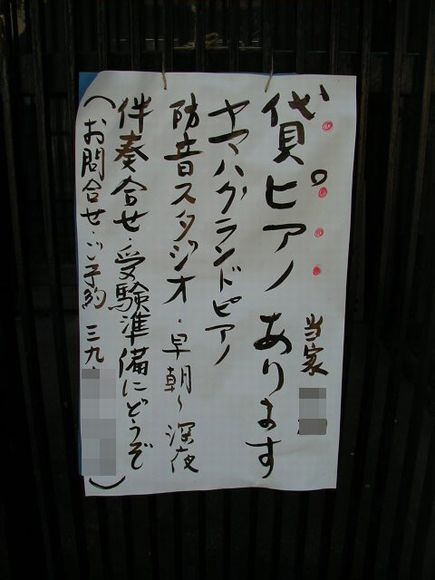 貸ピアノあります
当家
ヤマハグランドピアノ
防音スタジオ・早朝〜深夜
伴奏合せ・受験準備にどうぞ
(お問合せ・ご予約 三九・
)